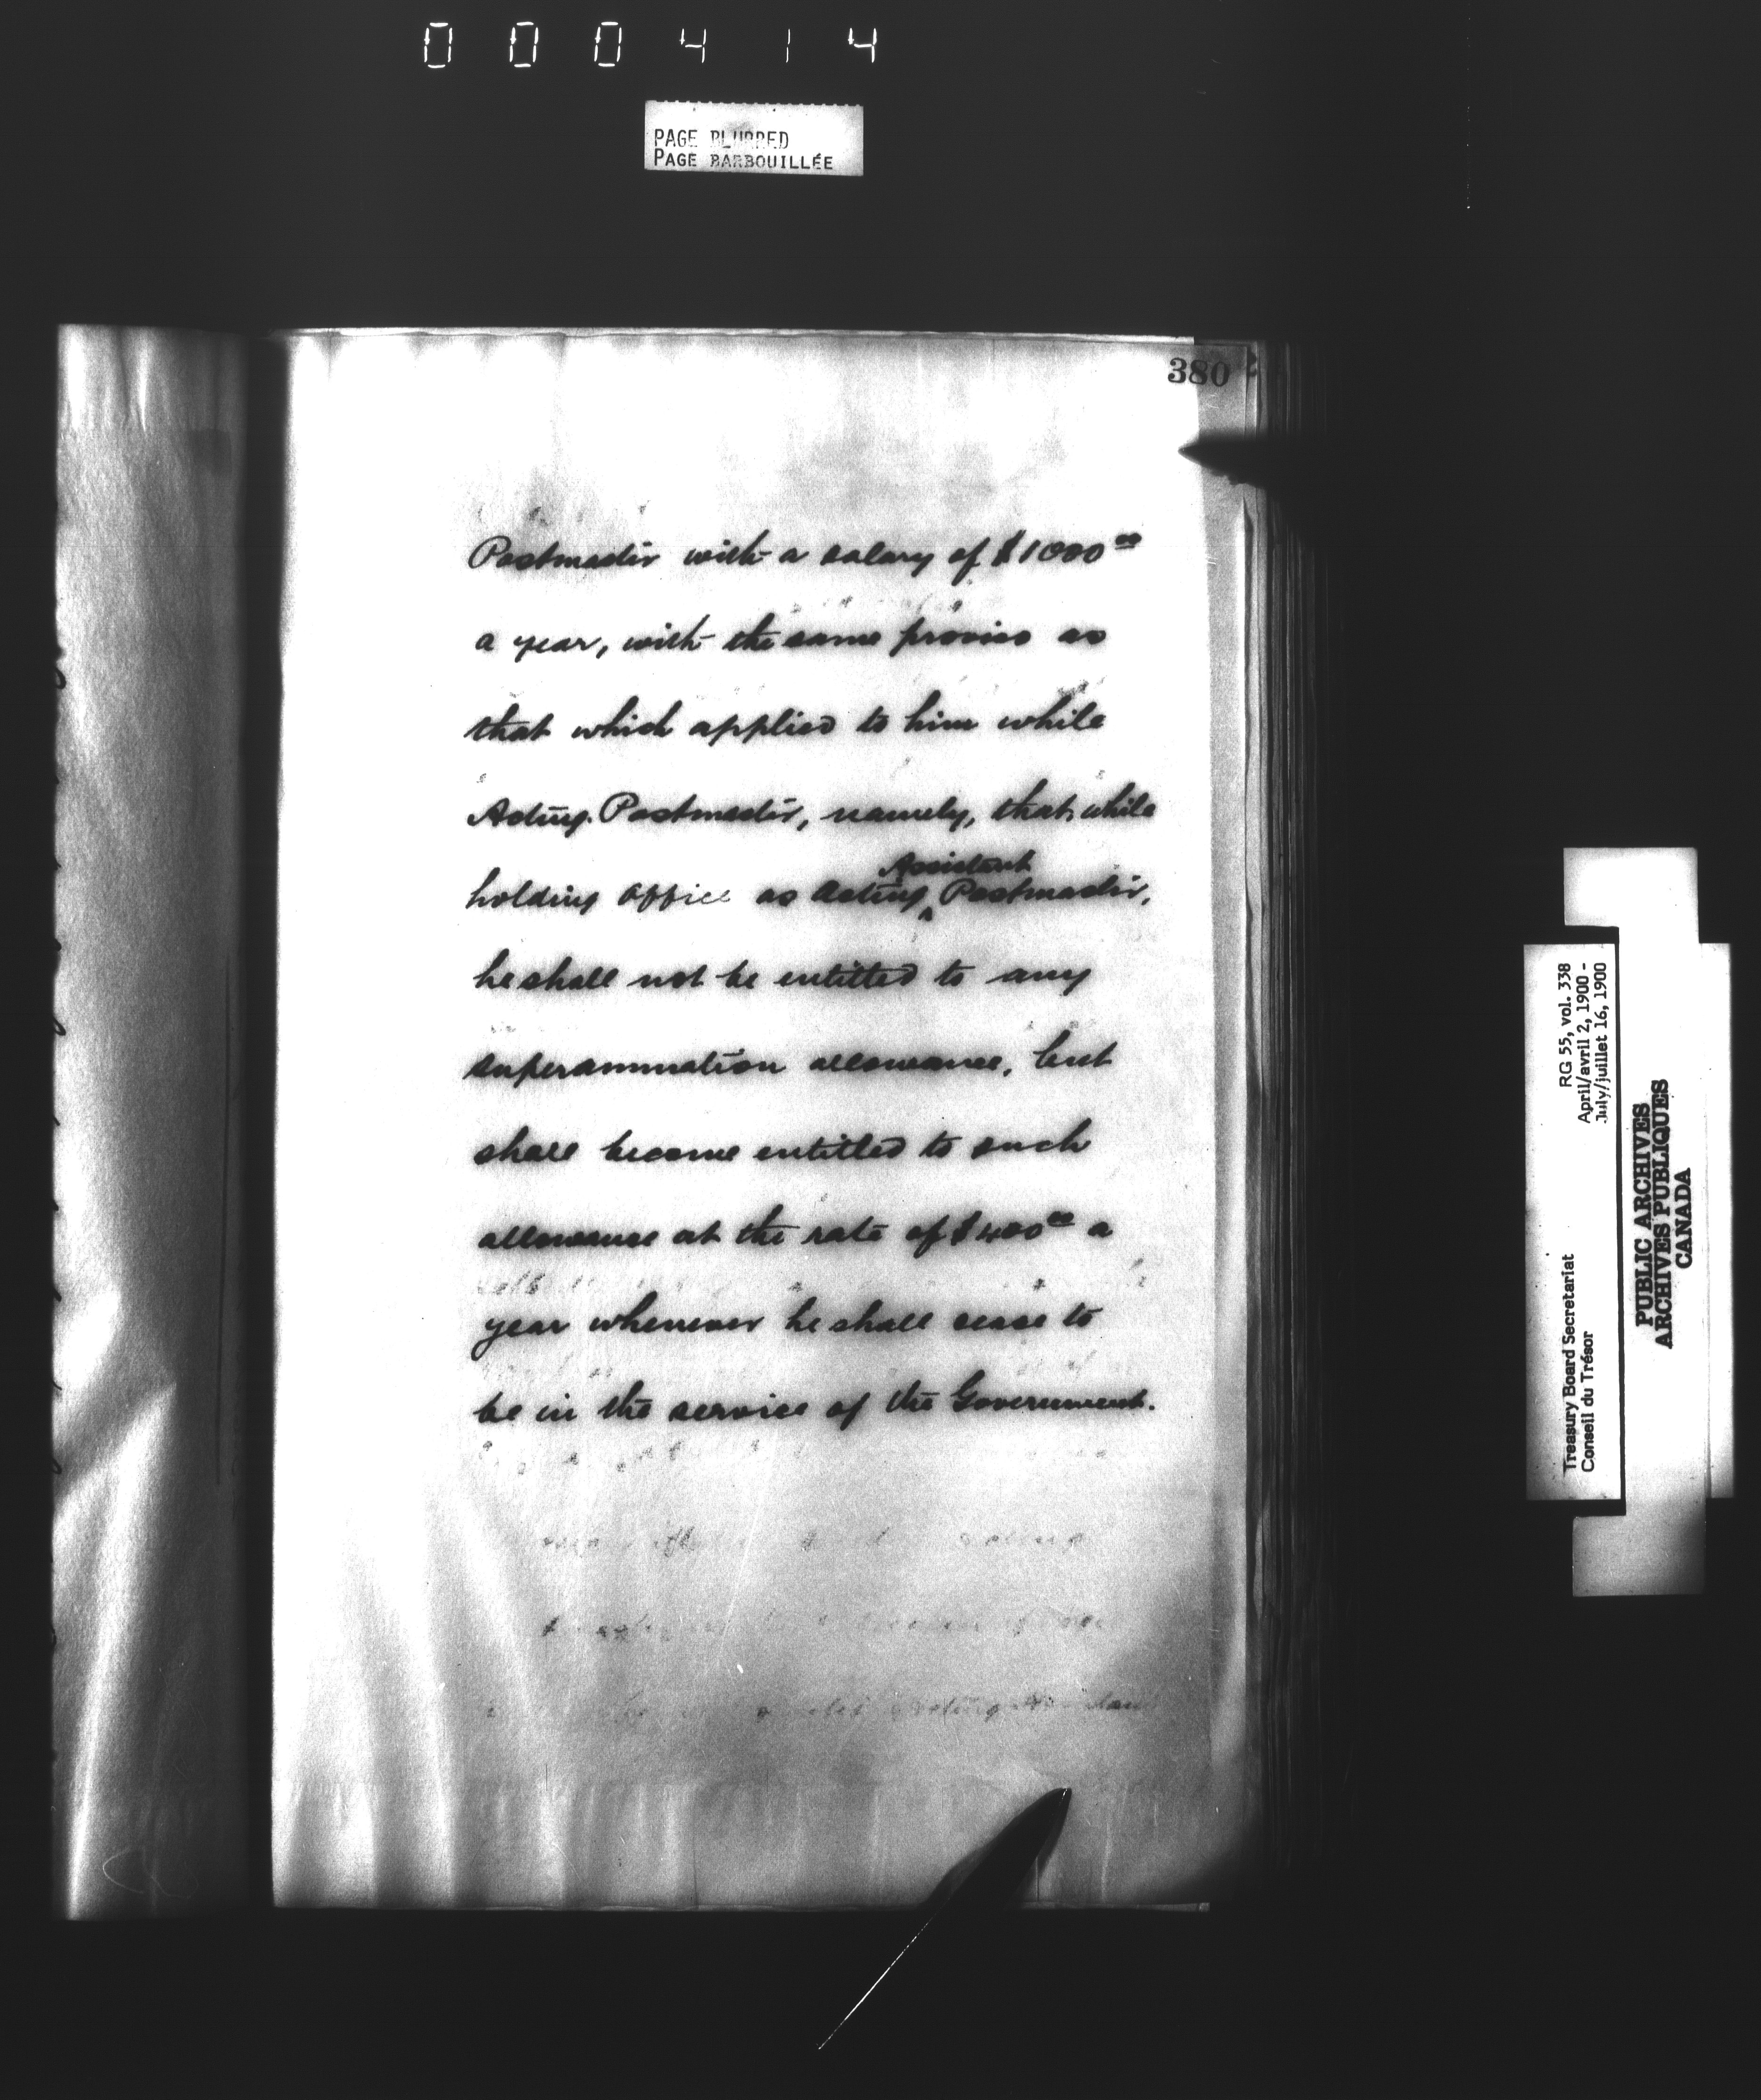 000414
PAGE BLURRED
PAGE BARBOUILLÉE
380
Postmaster with a salary of $1000.00
a year, with the same proviso as
that which applied to him while
Acting Postmaster, namely, that while
holding office as Acting ^ Assistant Postmaster,
he shall not be entitled to any
superannuation allowance, but
shall become entitled to such
allowance at the rate of $400.00 a
year whenever he shall cease to
be in the service of the Government.
RG 55, vol. 338
April/avril 2, 1900 -
July/juillet 16, 1900
Treasury Board Secretariat
Conseil du Trésor
PUBLIC ARCHIVES
ARCHIVES PUBLIQUES
CANADA